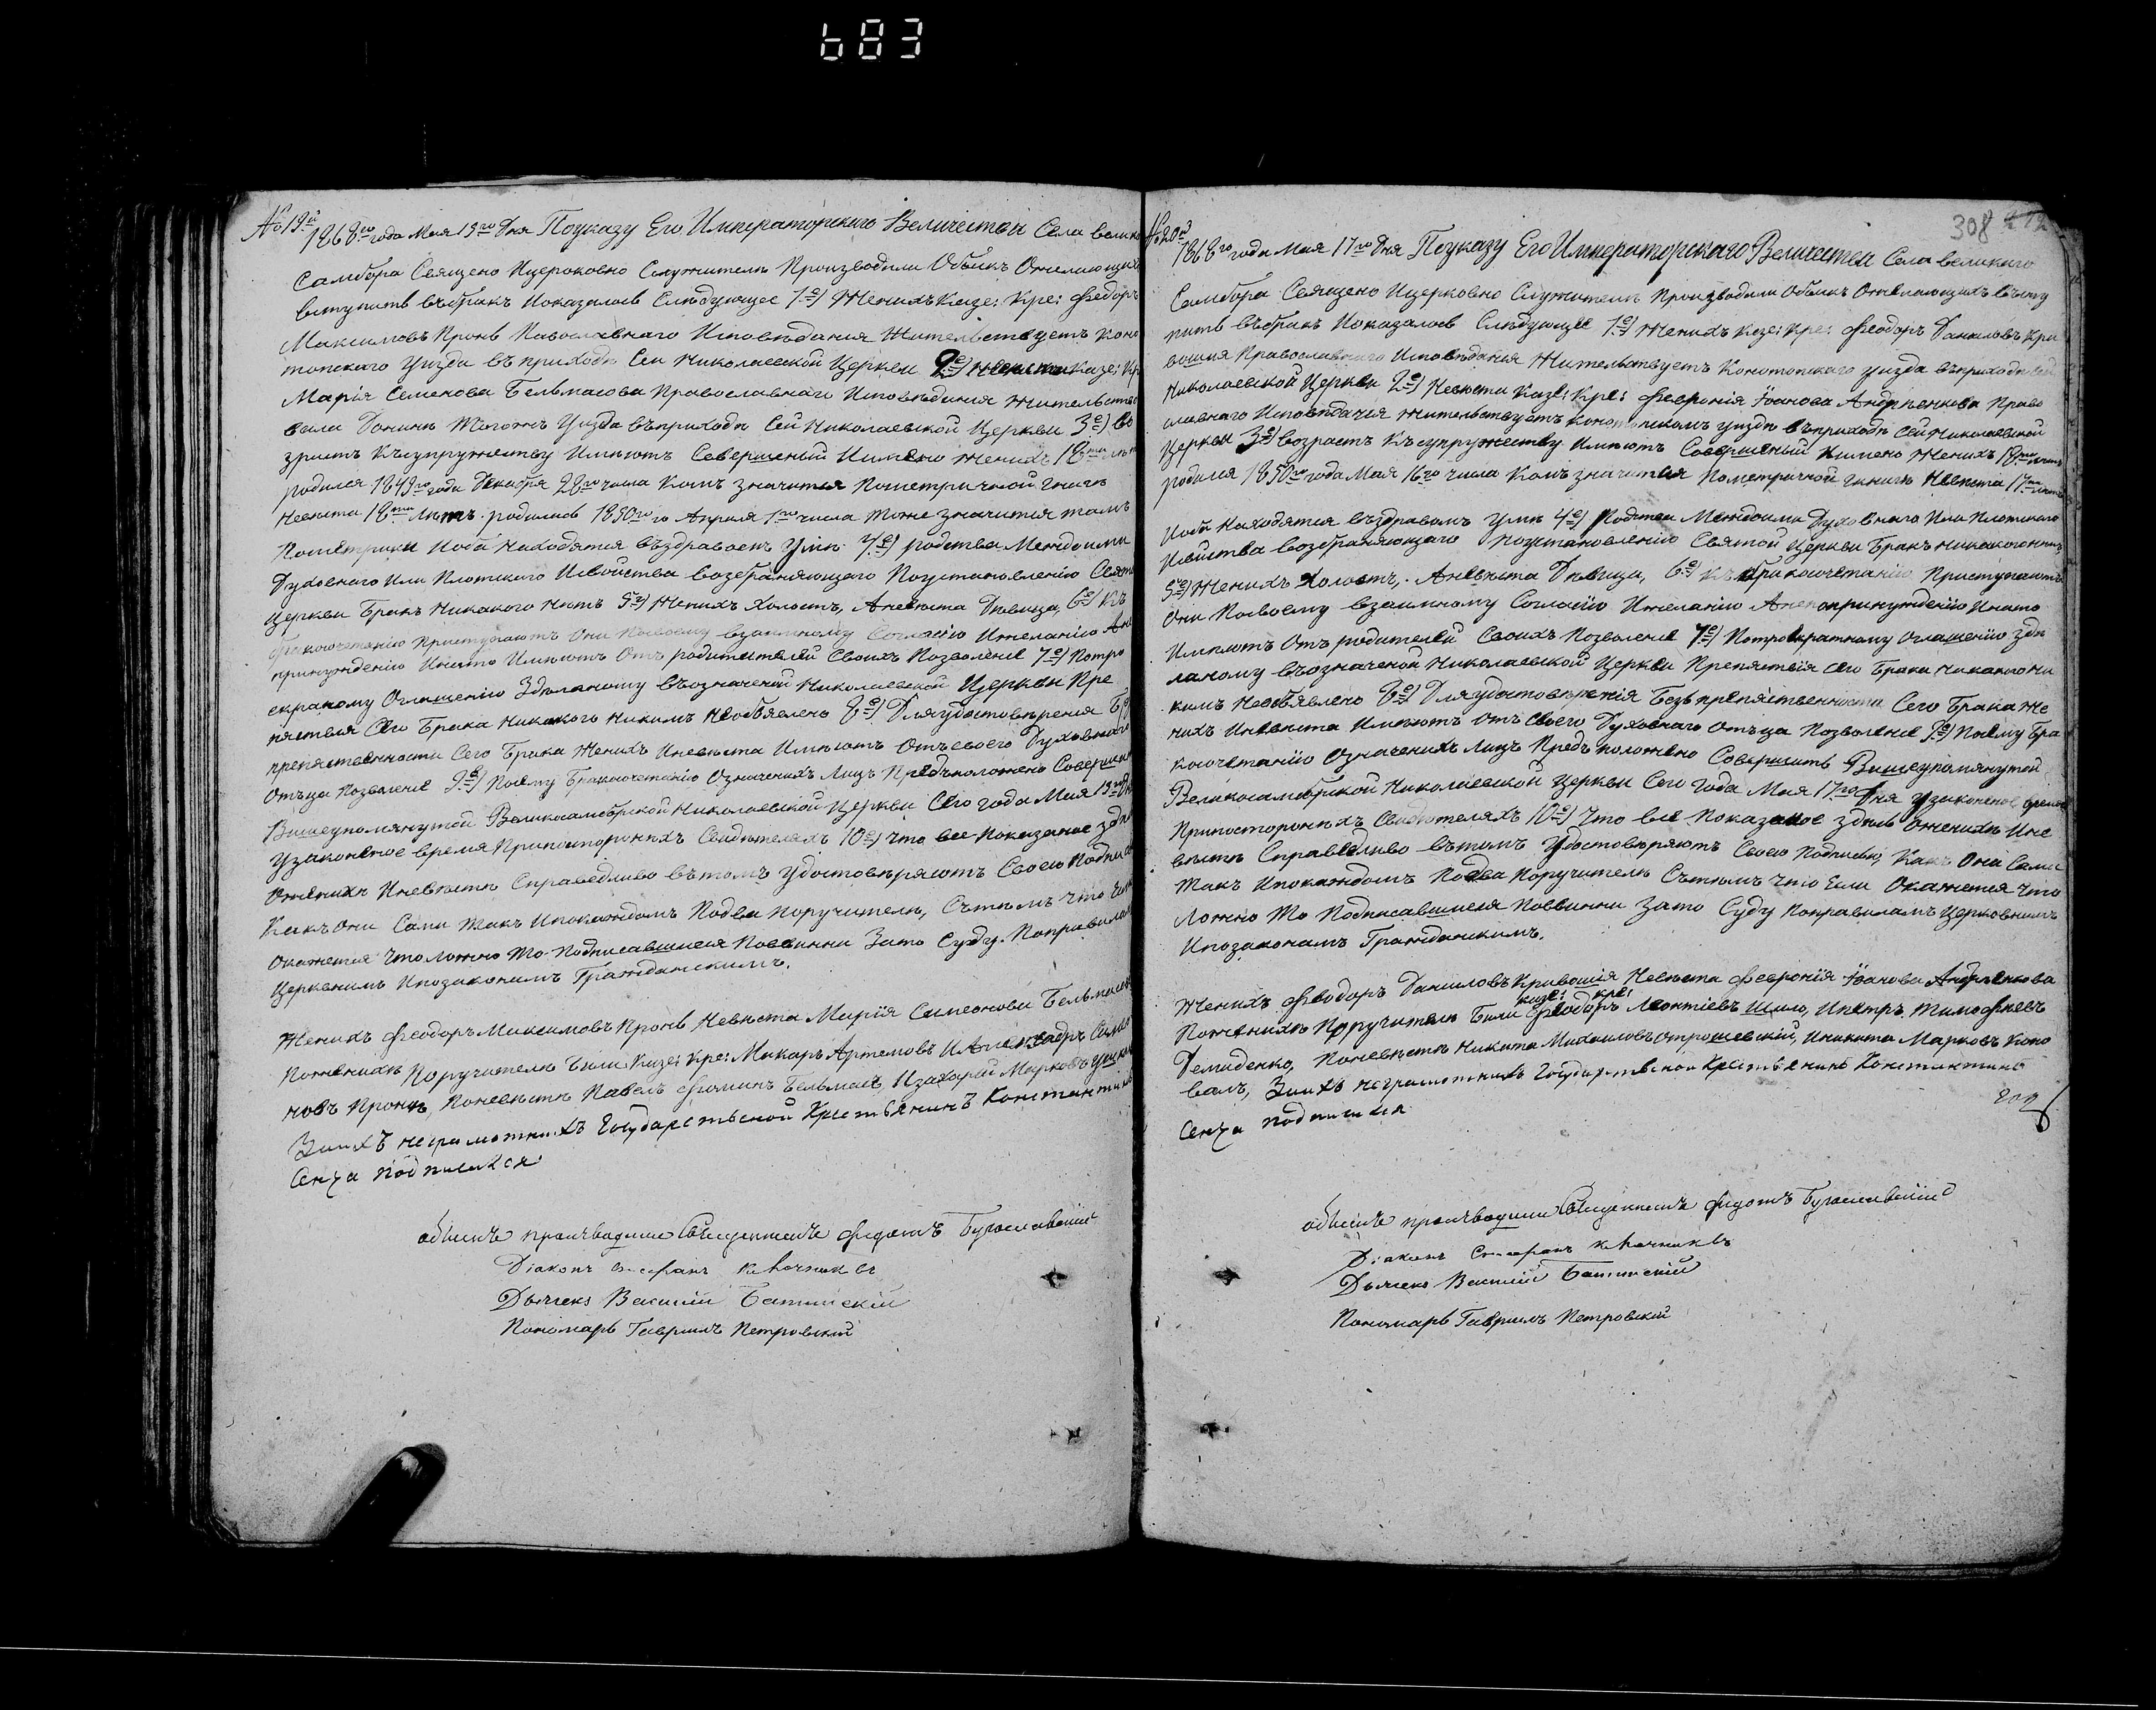 683
№ 19й
1868го года Мая 19го дня Поуказу Его Императорскаго Величества Села велико
Самбора Священо Ицерковно Служители Производили Обыкъ Ожелающихъ
вступить въбракъ Иоказалось Следующее 1е) Женихъ Казе: Кре: Федоръ
Максимовъ Пронь Павославнаго Исповѣдания Жительствуетъ Коно
топскаго уизда въ приходѣ Сеи Николаевской Церкви 2е) Невеста Казе: Кр
Марія Семенова Бельмасова Православнаго Исповѣдания Жительство
вала уизда въприходѣ Сей Николаевской Церкви 3е) Во
зрастъ Късупружеству Имѣютъ Совершеный Иимено Женихъ 18ть лѣтъ
родился 1849го года Декабря 28го числа Комъ Значится Пометричной Книгѣ
Невѣста 18ть Лѣтъ родилась 1850го го Апреля 1го числа Тоже Значится тамъ
Пометрики Иоба Находятся въздравомъ Умѣ 4е) родства Междоими
Духовнаго Или Плотскаго Исвойства возбраняющаго Поустановленію Свято
Церкви Бракъ Никакого Нѣтъ 5е) Женихъ Холостъ, Аневѣста Дѣвица, 6е) Къ
бракосочетанію Приступаютъ Они Посвоему взаимному Согласію Ижеланію Ане
принуждению Инато Имѣютъ Отъ родителей Своихъ Позволеніе 7е) Потро
екраному Оглашенію Здѣланому възначеной Николаевской Церкви Пре
пятствія Сего Брака Никакого Никимъ Необявлено 8е) Дляудостовѣрения Бе
препятственности Сего Брака Женихъ Иневѣста Имѣютъ Отъсвоего Духовнаго
Отьца Позволеніе 9е) Посему Бракосочетанію Означеныхъ Лицъ Предположено Совершить
Вишеупомянутой Великосамбрской Николаевской Церкви Сего года Мая 19го дн
Узаконеное время Припостороннихъ Свидетеляхъ 10е) Что все Показаное здѣ
Оженихѣ Иневѣстѣ Справедливо вътомъ удостовѣряютъ Своею Подпис
Какъ Они Сами Такъ Ипокаждомъ Подва Поручители, Сътѣмъ Что Если
Окажется Что ложно То Подписавшиеся Повинни Зато Суду Поправиламъ
Церковнимъ Ипозаконамъ Гражданскимъ.
Женихъ Феодоръ Максимовъ Пронь Невѣста Марія Симеонови Бельмасов
Поженихѣ Поручители Били Казе: Кре: Макаръ Артемовъ ИАлександръ Симе
новъ Пронь, Поневѣстѣ Павелъ Фоминъ Бельмасъ, Изахарій Марковъ
Заихъ неграмотныхъ Государственой Крестьянинъ Константинъ
Сенча подписался
обыскъ производили Священникъ Федотъ Бугославскій
Діаконъ Стефанъ
Дьячекъ Василій Батинскій
Пономарь Гавриилъ Петровскій
308
№ 20й
1868го года Мая 17го дня Поуказу Его Императорскаго Величества Села великаго
Самбора Священо Ицерковно Служители Производили Обыкъ Ожелающихъ въсту
пить въбракъ Иоказалось Следующее 1е) Женихъ Казе: Кре: Феодоръ Даниловъ Кри
вошия Православнаго Исповѣдания Жительствуетъ Конотопскаго уизда въприходѣ
Николаевской Церкви 2е) Невѣста Казе: Кре: Февронія Іоанова Андрѣенкова Право
славнаго Исповѣдания Жительствуетъ Конотопскомъ уиздѣ въприходѣ Сей Николаевской
Церкви 3е) возрастъ Късупружеству Имѣютъ Совершеный Иимено Женихъ 18ть лѣтъ
родился 1850го года Мая 16го числа Комъ значится Пометричной Книгѣ Невѣста 17ть лѣтъ
Иоба Находятся въздравомъ Умѣ 4е) Родства Междоими Духовнаго Или Плотскаго
Исвойства возбраняющаго Поустановленію Святой Церкви Бракъ Никакого Нѣтъ
5е) Женихъ Холостъ, Аневѣста Дѣвица, 6е) Къ бракосочетанію Приступаютъ
Они Посвоему взаимному Согласію Ижеланію Анепопринуждению Инато
Имѣютъ Отъ родителей Своихъ Позволеніе 7е) Потроекратному Оглашенію здѣ
ланому възначеной Николаевской Церкви Препятствія Сего Брака Никакого Ни
кимъ Необявлено 8е) Для удостовѣренія Безъ препятственности Сего Брака Же
нихъ Иневѣста Имѣютъ отъ своего Духовнаго Отьца Позволение 9е) Посему Бра
косочетанію Означенихъ Лицъ Предъположено Совершить Вишеупомянутой
Великосамбрской Николаевской Церкви Сего года Мая 17го дня Узаконеное время
Припостороннихъ Свидетеляхъ 10е) Что все Показаное здѣсь Оженихѣ Ине
вѣстѣ Справедливо вътомъ удостовѣряютъ Своею Подписью, Какъ Они Сами
Такъ Ипокаждомъ Подва Поручители Сътѣмъ Что Если Окажется Что
Ложно То Подписавшиеся Повинни Зато Суду Поправиламъ Церковнимъ
Ипозаконамъ Гражданскимъ.
Женихъ Феодоръ Даниловъ Кривошія Невѣста Февронія Іоанова Андрѣенкова
казе: кре:
Поженихѣ Поручители Били Феодоръ Леонтіевъ Шило, Ипетръ Тимофѣевъ
Демиденко, Поневѣстѣ Никита Михаиловъ Отрошевскій, Иникита Марковъ Коно
валъ, Заихъ неграмотныхъ Государственой Крестьянинъ Константинъ
Сенча подписался
обыскъ производили Священникъ Федотъ Бугославскій
Діаконъ Стефанъ
Дьячекъ Василій Батинскій
Пономарь Гавриилъ Петровскій